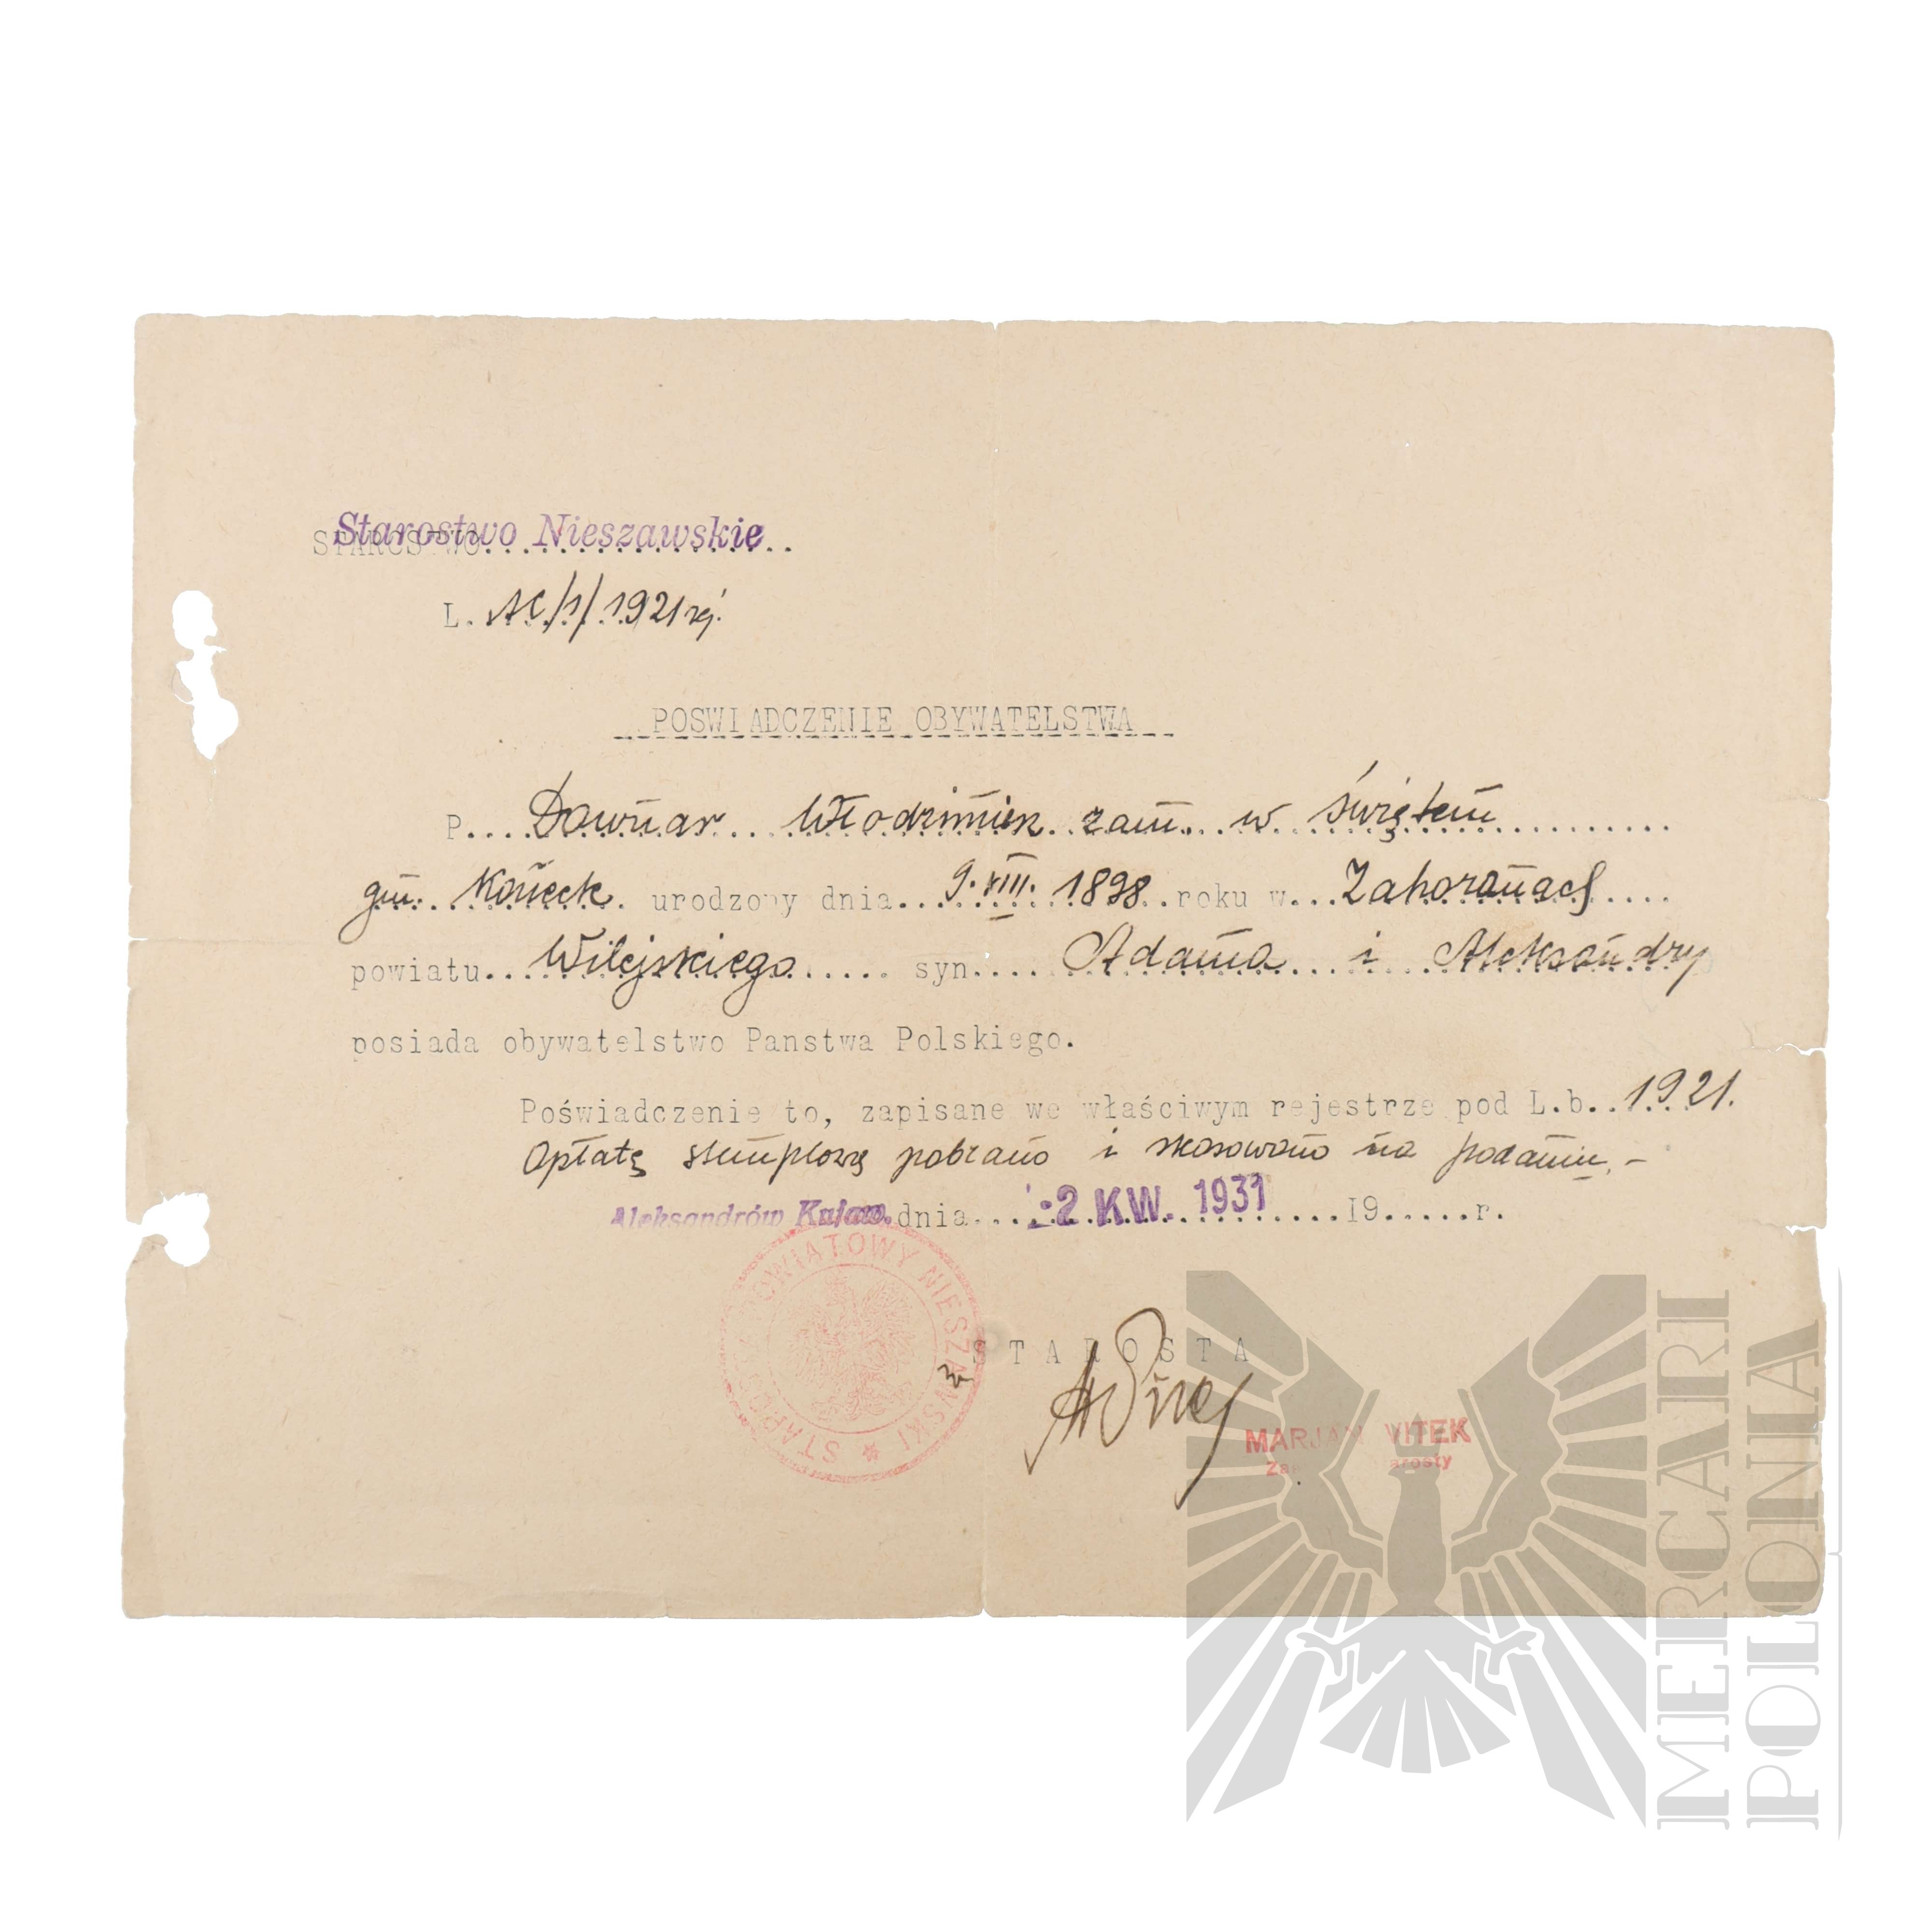 Starostwo Nieszawskie
STAROSTWO..................
L. AC/1/1921 rej.
POSWIADCZENIE OBYWATELSTWA
P.... Downar Włodzimierz zam. w Świętem
gm. Koneck urodzony dnia 9.VIII.1898 roku w Zahoranach
powiatu Wilejskiego syn Adama i Aleksandry
posiada obywatelstwo Panstwa Polskiego.
Poświadczenie to, zapisane we właściwym rejestrze pod L.b. 1921.
Opłatę stemplową pobrano i skasowano na podaniu.-
Aleksandrów Kujaw. dnia -2 KW. 1931 19.....r.
STAROSTA POWIATOWY NIESZAWSKI
STAROSTA
MARJAN WITEK
arosty
MERCARI
POLONIA